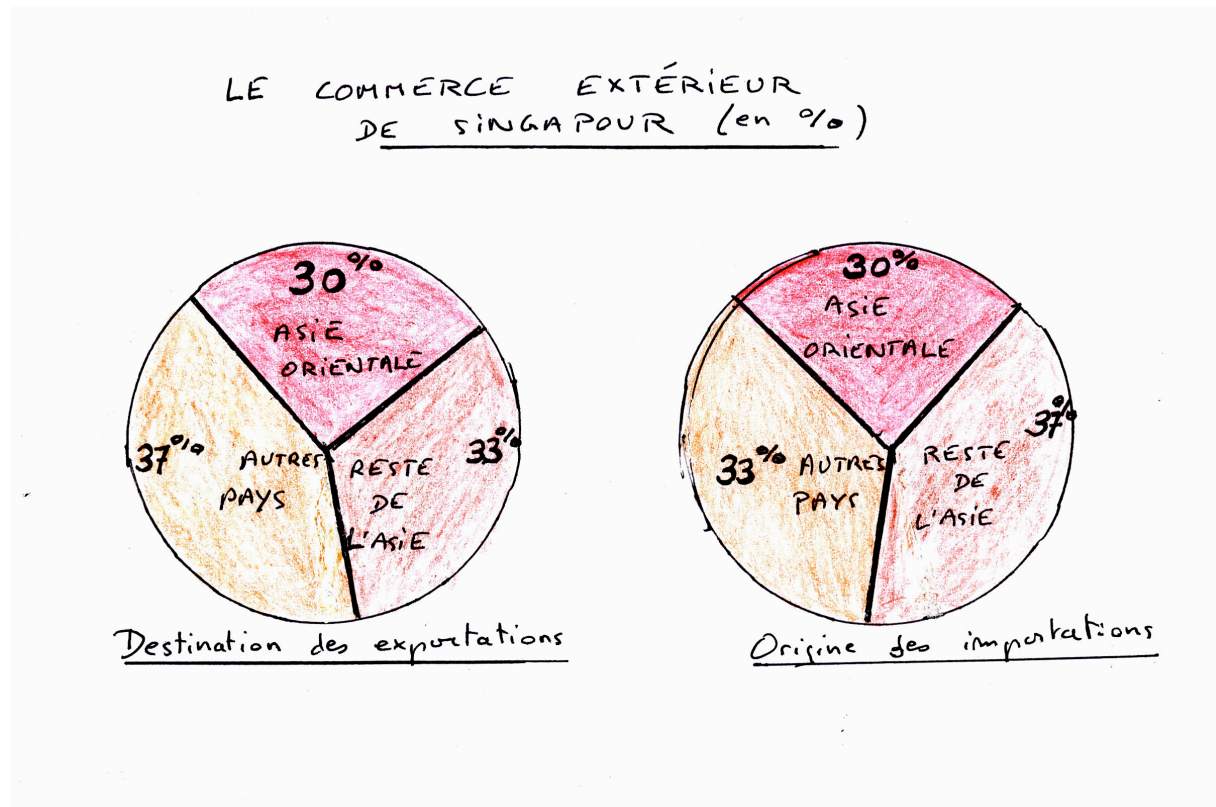 LE COMMERCE EXTÉRIEUR
DE SINGAPOUR (en %)
30%
ASIE
ORIENTALE
37%
AUTRES
PAYS
33%
RESTE
DE
L'ASIE
Destination des exportations
30%
ASIE
ORIENTALE
33%
AUTRES
PAYS
37%
RESTE
DE
L'ASIE
Origine des importations